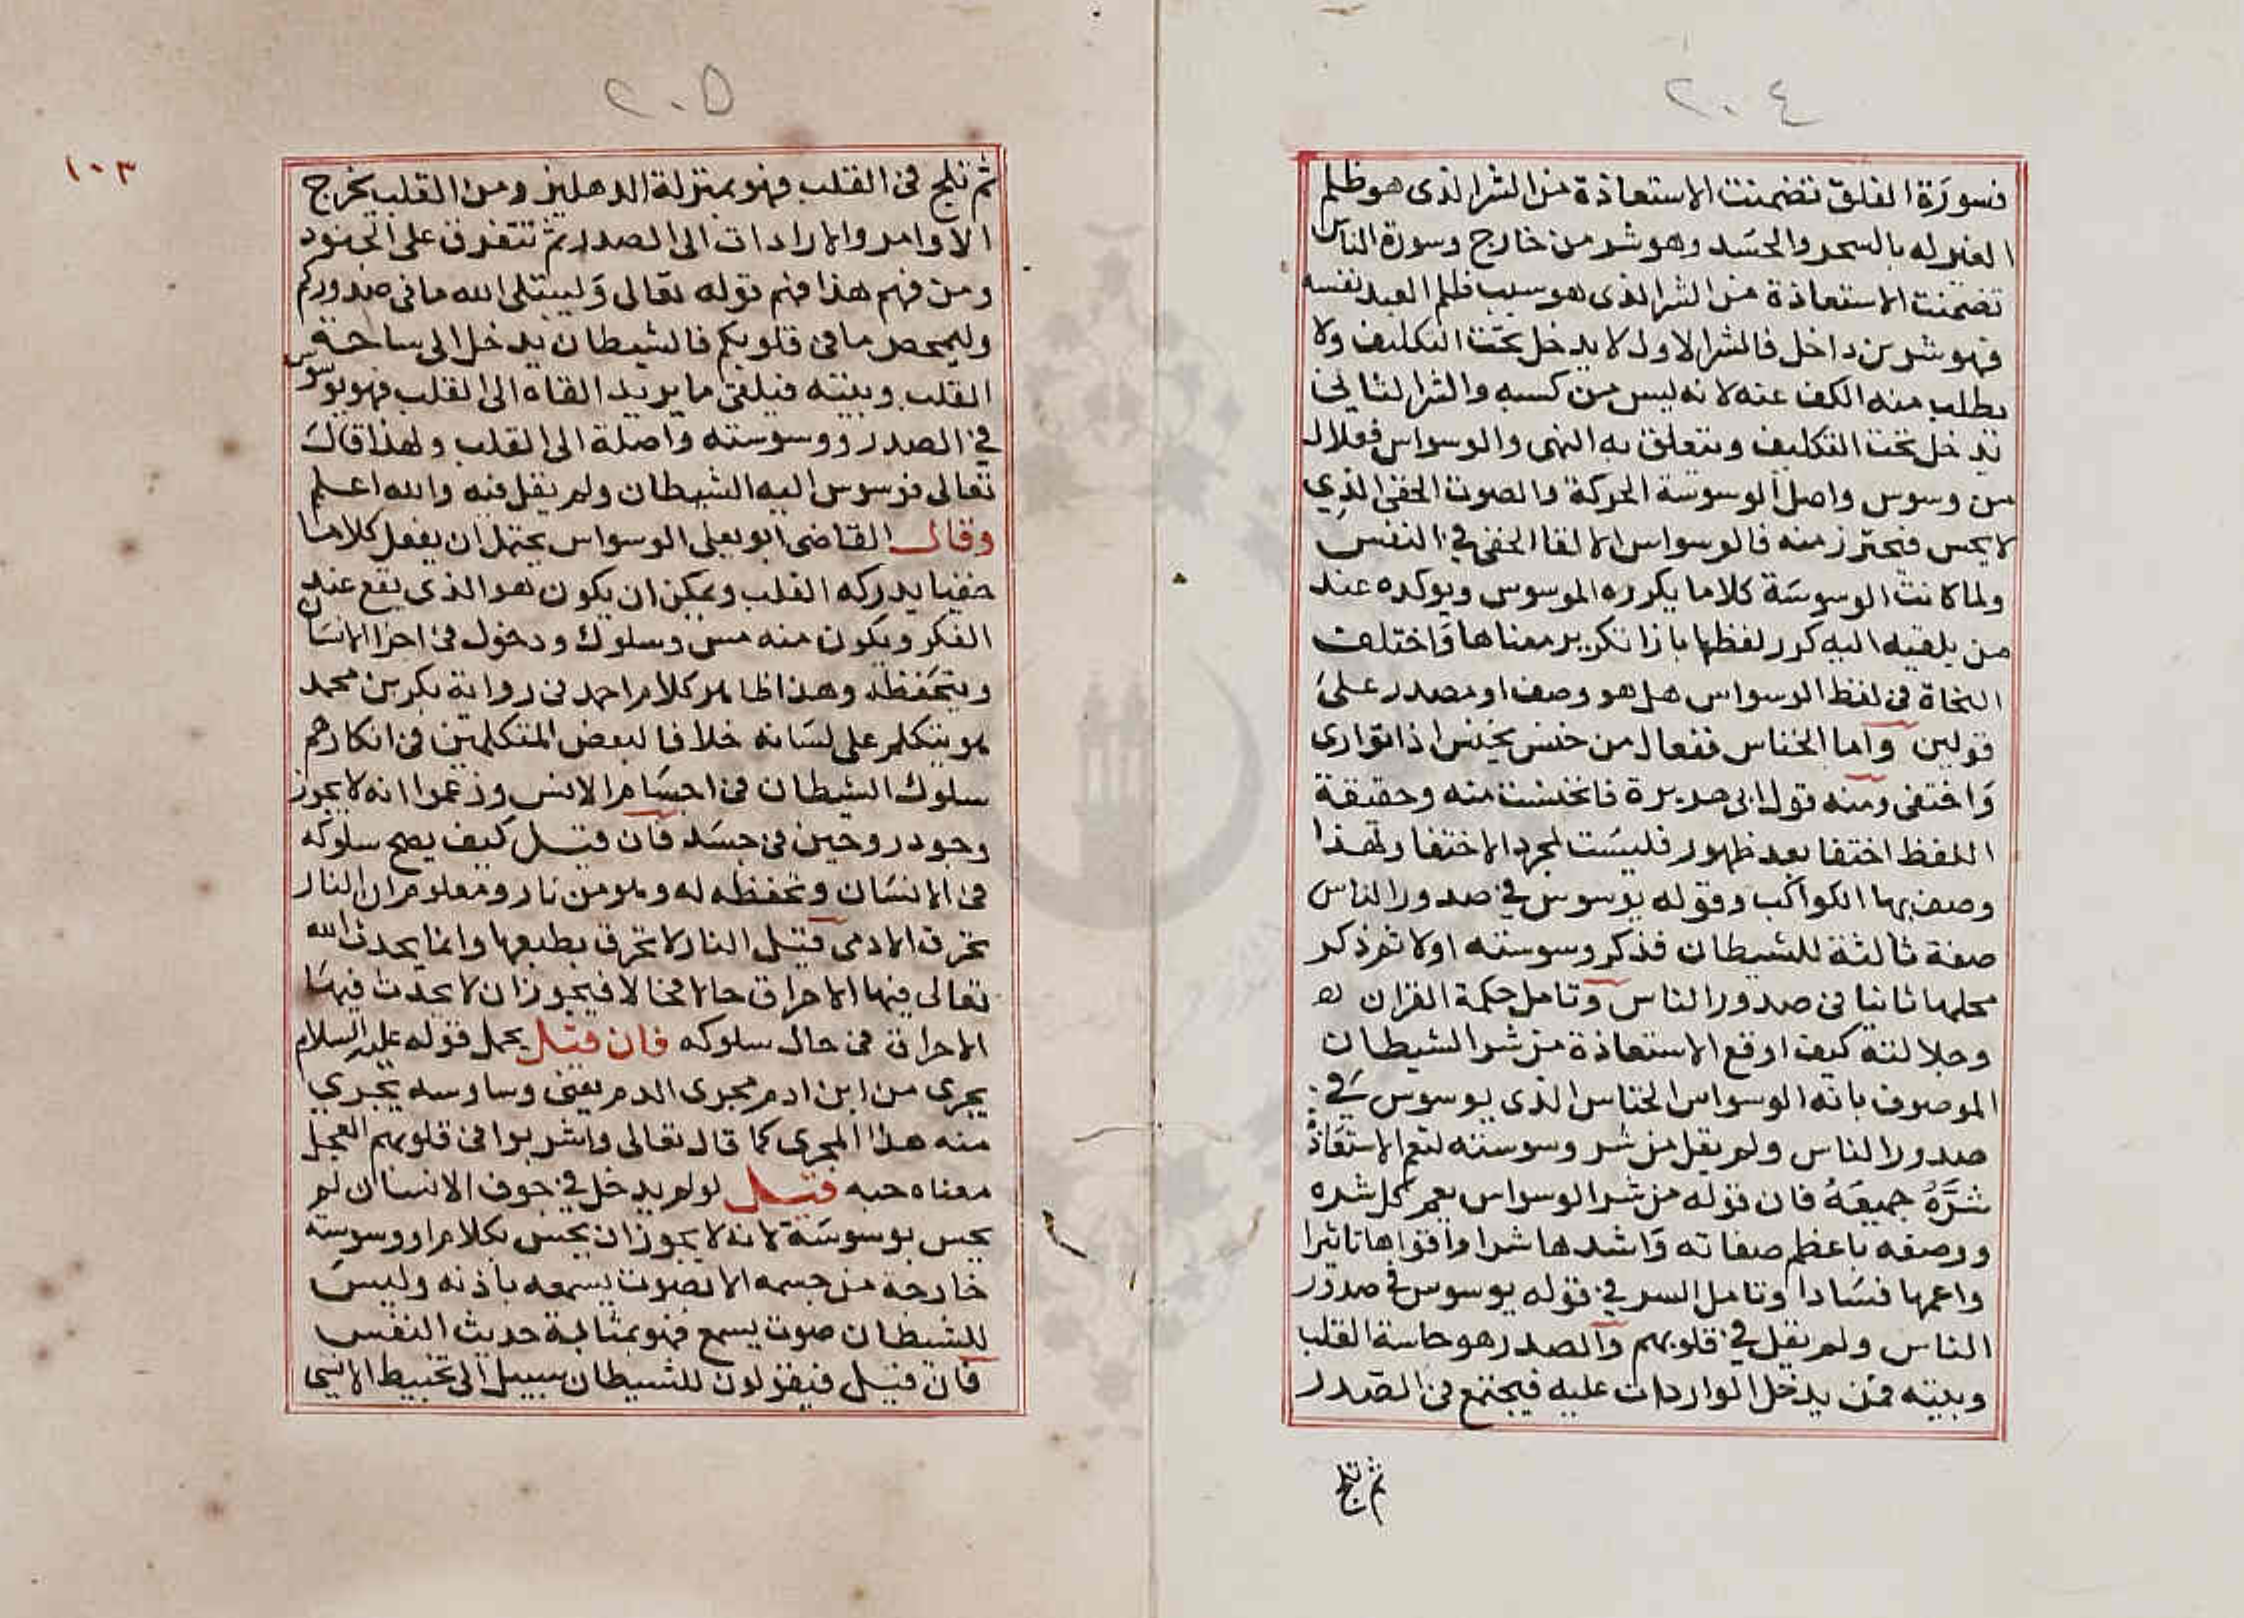 ٢٠٤
فسورة الفلق تضمنت الاستعاذة من الشر الذى هو ظلم
الغير له بالسحر والحسد وهو شر من خارج وسورة الناس
تضمنت الاستعاذة من الشر الذى هو سبب ظلم العبد نفسه
فهو شر من داخل فالشر الاول لا يدخل تحت التكليف ولا
يطلب منه الكف عنه لانه ليس من كسبه والشر الثانى
يدخل تحت التكليف ويتعلق به النهى والوسواس فعلال
من وسوس واصل الوسوسة الحركة والصوت الخفى الذي
لا يحس فيحترز منه فالوسواس الالقا الخفي في النفس
ولما كانت الوسوسة كلاما يكرره الموسوس ويوكده عند
من يلقيه اليه كرر لفظها بازا تكرير معناها واختلف
النحاة فى لفظ الوسواس هل هو وصف او مصدر على
قولين واما الخناس ففعال من خنس يخنس اذا توارى
واختفى ومنه قول ابى هريرة فانخنست منه وحقيقة
اللفظ اختفا بعد ظهور فليست لمجرد الاختفا ولهذا
وصف بها الكواكب وقوله يوسوس في صدور الناس
صفة ثالثة للشيطان فذكر وسوسته اولا ثم ذكر
محلها ثانيا فى صدور الناس وتامل حكمة القران
وجلالته كيف اوقع الاستعاذة من شر الشيطان
الموصوف بانه الوسواس الخناس الذى يوسوس في
صدور الناس ولم يقل من شر وسوسته لتعم الاستعاذة
شره جميعه فان قوله من شر الوسواس يعم كل شره
ووصفه باعظم صفاته واشدها شرا واقواها تاثيرا
واعمها فسادا وتامل السر في قوله يوسوس في صدور
الناس ولم يقل في قلوبهم والصدر هو حاسة القلب
وبيته فمن يدخل الواردات عليه فيجتمع فى الصدر
ثم تلج
٢٠٥
١٠٣
ثم تلج فى القلب فهو بمنزلة الدهليز ومن القلب يخرج
الاوامر والارادات الى الصدر ثم تتفرق على الجنود
ومن فهم هذا فهم قوله تعالى وليبتلى الله ما فى صدوركم
وليمحص ما فى قلوبكم فالشيطان يدخل الى ساحة
القلب وبيته فيلقى ما يريد القاه الى القلب فهو يوسوس
في الصدر ووسوسته واصلة الى القلب ولهذا قال
تعالى فوسوس اليه الشيطان ولم يقل فيه والله اعلم
وقال القاضى ابو يعلى الوسواس يحتمل ان يفعل كلاما
خفيا يدركه القلب ويمكن ان يكون هو الذى يقع عند
الفكر ويكون منه مس وسلوك ودخول فى اجزا الانسان
ويتخفظه وهذا ظاهر كلام احمد فى رواية بكر بن محمد
هو يتكلم على لسانه خلافا لبعض المتكلمين فى انكارهم
سلوك الشيطان فى اجسام الانس وزعموا انه لا يجوز
وجود روحين فى جسد فان قيل كيف يصح سلوكه
فى الانسان وتخفظه له وهو من نار ومعلوم ان النار
تحرق الادمى قيل النار لا تحرق بطبعها وانما يحدث الله
تعالى فيها الاحراق حالا فحالا فيجوز ان لا يحدث فيها
الاحراق فى حال سلوكه فان قيل يحمل قوله عليه السلام
يجرى من ابن ادم مجرى الدم يعنى وساوسه تجري
منه هذا المجرى كما قال تعالى واشربوا فى قلوبهم العجل
معناه حبه قيل لو لم يدخل في جوف الانسان لم
يحس بوسوسة لانه لا يجوز ان يحس بكلام او وسوسة
خارجة من جسمه الا بصوت يسمعه باذنه وليس
للشيطان صوت يسمع فهو بمثابة حديث النفس
فان قيل فيقولون للشيطان سبيل الى تخبيط الانسى